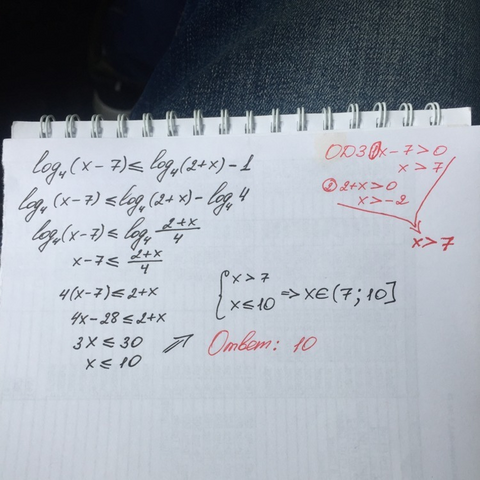 log₄(x-7)≤log₄(2+x)-1
log₄(x-7)≤log₄(2+x)-log₄4
log₄(x-7)≤log₄ (2+x)/4
x-7≤ (2+x)/4
4(x-7)≤2+x
4x-28≤2+x
3x≤30
x≤10
{ x>7
x≤10 => x∈(7;10]
Ответ: 10
ОДЗ ① x-7>0
x>7
② 2+x>0
x>-2
x>7